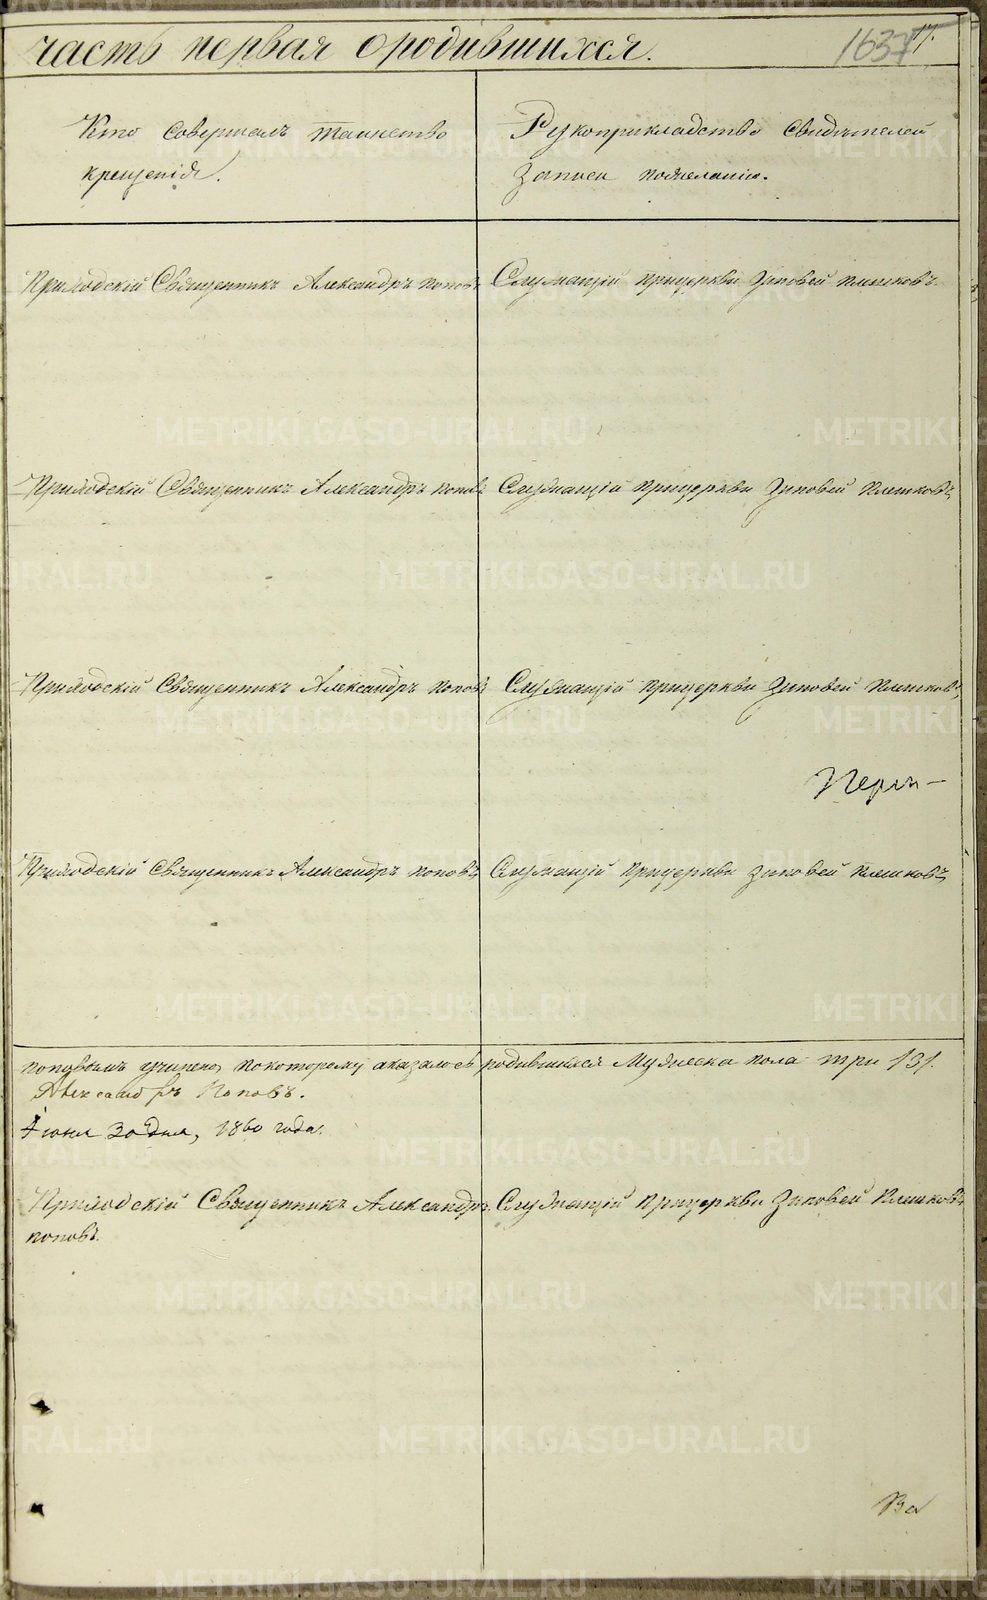 часть первая о родившихся.
1637
Кто совершалъ таинство
крещенія.
Рукоприкладство свидѣтелей
записи пожеланію.
Приходскій Священникъ Александръ Поповъ
Служащій прицеркви Зиновей Плешковъ.
Приходскій Священникъ Александръ Поповъ
Служащій прицеркви Зиновей Плешковъ,
Приходскій Священникъ Александръ Поповъ
Служащій прицеркви Зиновей Плешковъ,
Приходскій Священникъ Александръ Поповъ,
Служащій прицеркви Зиновей Плешковъ,
поповымъ учинено, покоторому аказалось родившихся Мужеска пола три /3/.
Александръ Поповъ.
Іюня 30 дня, 1860 года.
Приходскій Священникъ Александръ
поповъ.
Служащій прицеркви Зиновей Плешковъ,
METRIKI.GASO-URAL.RU